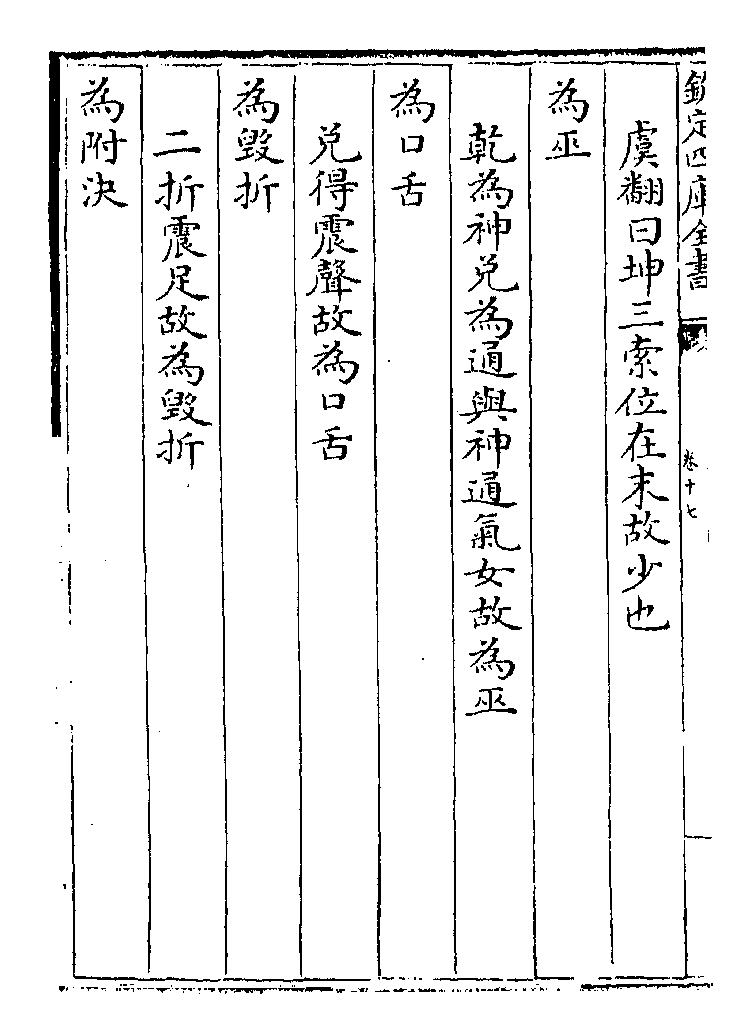 欽定四庫全書
卷十七
虞翻曰坤三索位在末故少也
為巫
乾為神兌為通與神通氣女故為巫
為口舌
兌得震聲故為口舌
為毀折
二折震足故為毀折
為附決